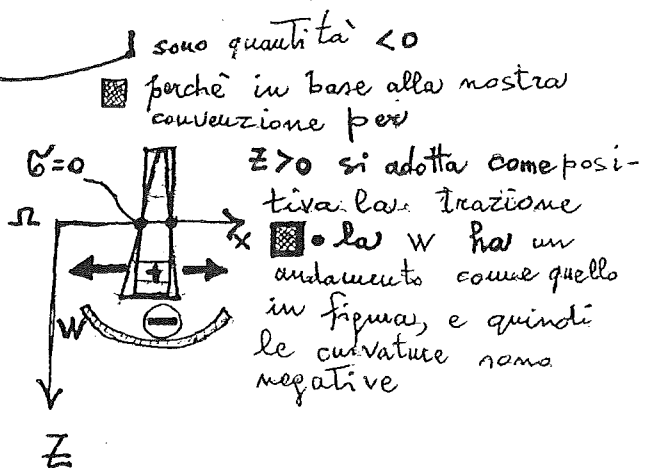 sono quantità <0
perchè in base alla nostra
convenzione per
σ=0
z>0 si adotta come posi-
tiva la trazione
Ω
x
• la w ha un
andamento come quello
+
in figura, e quindi
W
−
le curvature sono
negative
Z